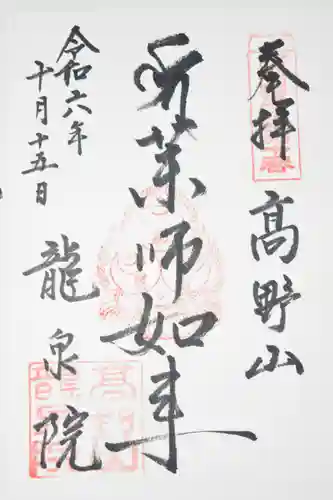 奉拝
高野山
薬師如来
令和六年
十月十五日
龍泉院